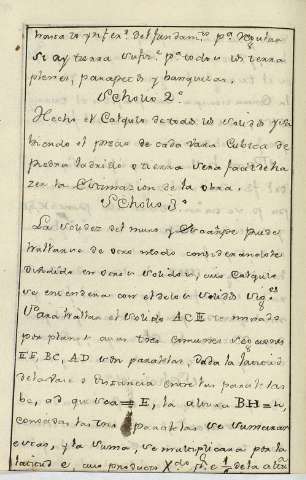 del fundam.to p.a
Si ay tierra sufi.te p.a todos los terra
plenes, parapetos y banquetas.
Scholio 2.º
Hecho el Calculo de todos los solidos y sa
biendo el precio de cada Vara Cubica de
piedra ladrillo o tierra sera facil de ha
zer la Estimazion de la obra.
Scholio 3.º
La solidez del muro y puede
hallarse de otro modo considerandole
dividido en otros solidos, cuio Calculo
se entendera con el de los solidos sig.es
Para hallar el solido terminado
por planos cuias tres comunes secciones
EF, BC, AD son paralelas, dada la latitud
de la vase o distancia entre las paralelas
bc, ad que sea = E, la altura BH = h,
conocidas las tres paralelas se sumaran
estas, y la suma, se multiplicará por la
latitud e, cuio producto X.do p.r de la altu